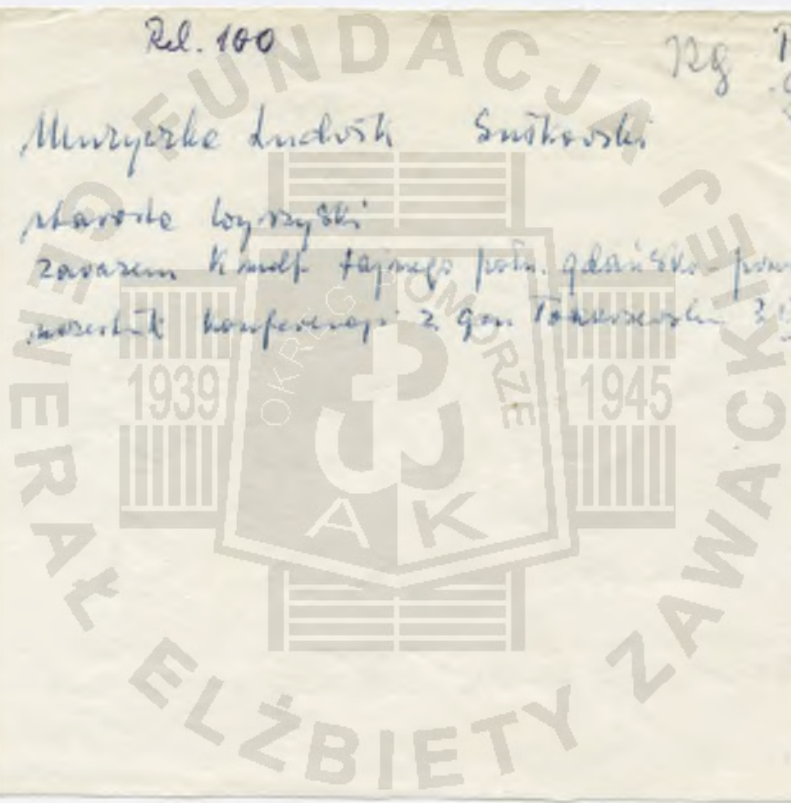 Rel. 100
Muzyczka Ludwik Sułkowski
starosta wyrzyski
zarazem Kmdt tajnego poln. gdańsko-pom
uczestnik konferencji z gen Tokarzewskim
FUNDACJA GENERAŁ ELŻBIETY ZAWACKIEJ
OKRĘG POMORZE
1939 1945
AK